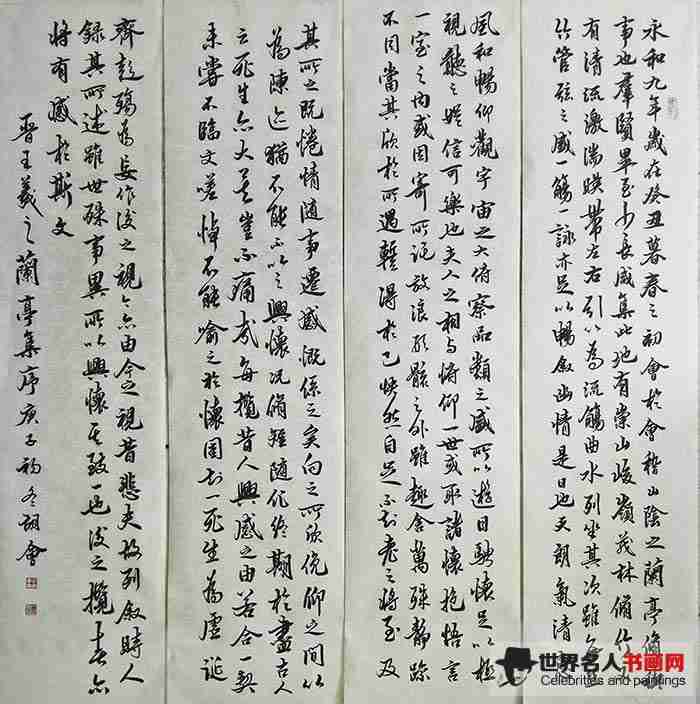 永和九年歲在癸丑暮春之初會於會稽山陰之蘭亭脩禊
事也羣賢畢至少長咸集此地有崇山峻嶺茂林脩竹又
有清流激湍暎帶左右引以為流觴曲水列坐其次雖
竹管弦之盛一觴一詠亦足以暢敘幽情是日也天朗氣清
風和暢仰觀宇宙之大俯察品類之盛所以遊目騁懷足以極
視聽之娛信可樂也夫人之相與俯仰一世或取諸懷抱悟言
一室之內或因寄所託放浪形骸之外雖趣舍萬殊靜躁
不同當其欣於所遇暫得於己快然自足不知老之將至及
其所之既惓情隨事遷感慨係之矣向之所欣俛仰之間以
為陳迹猶不能不以之興懷況脩短隨化終期於盡古人
云死生亦大矣豈不痛哉每攬昔人興感之由若合一契
未嘗不臨文嗟悼不能喻之於懷固知一死生為虛誕
齊彭殤為妄作後之視今亦由今之視昔悲夫故列敘時人
錄其所述雖世殊事異所以興懷其致一也後之攬者亦
將有感於斯文
晉王羲之蘭亭集序庚子初冬
世界名人书画网
Celebrities and paintings